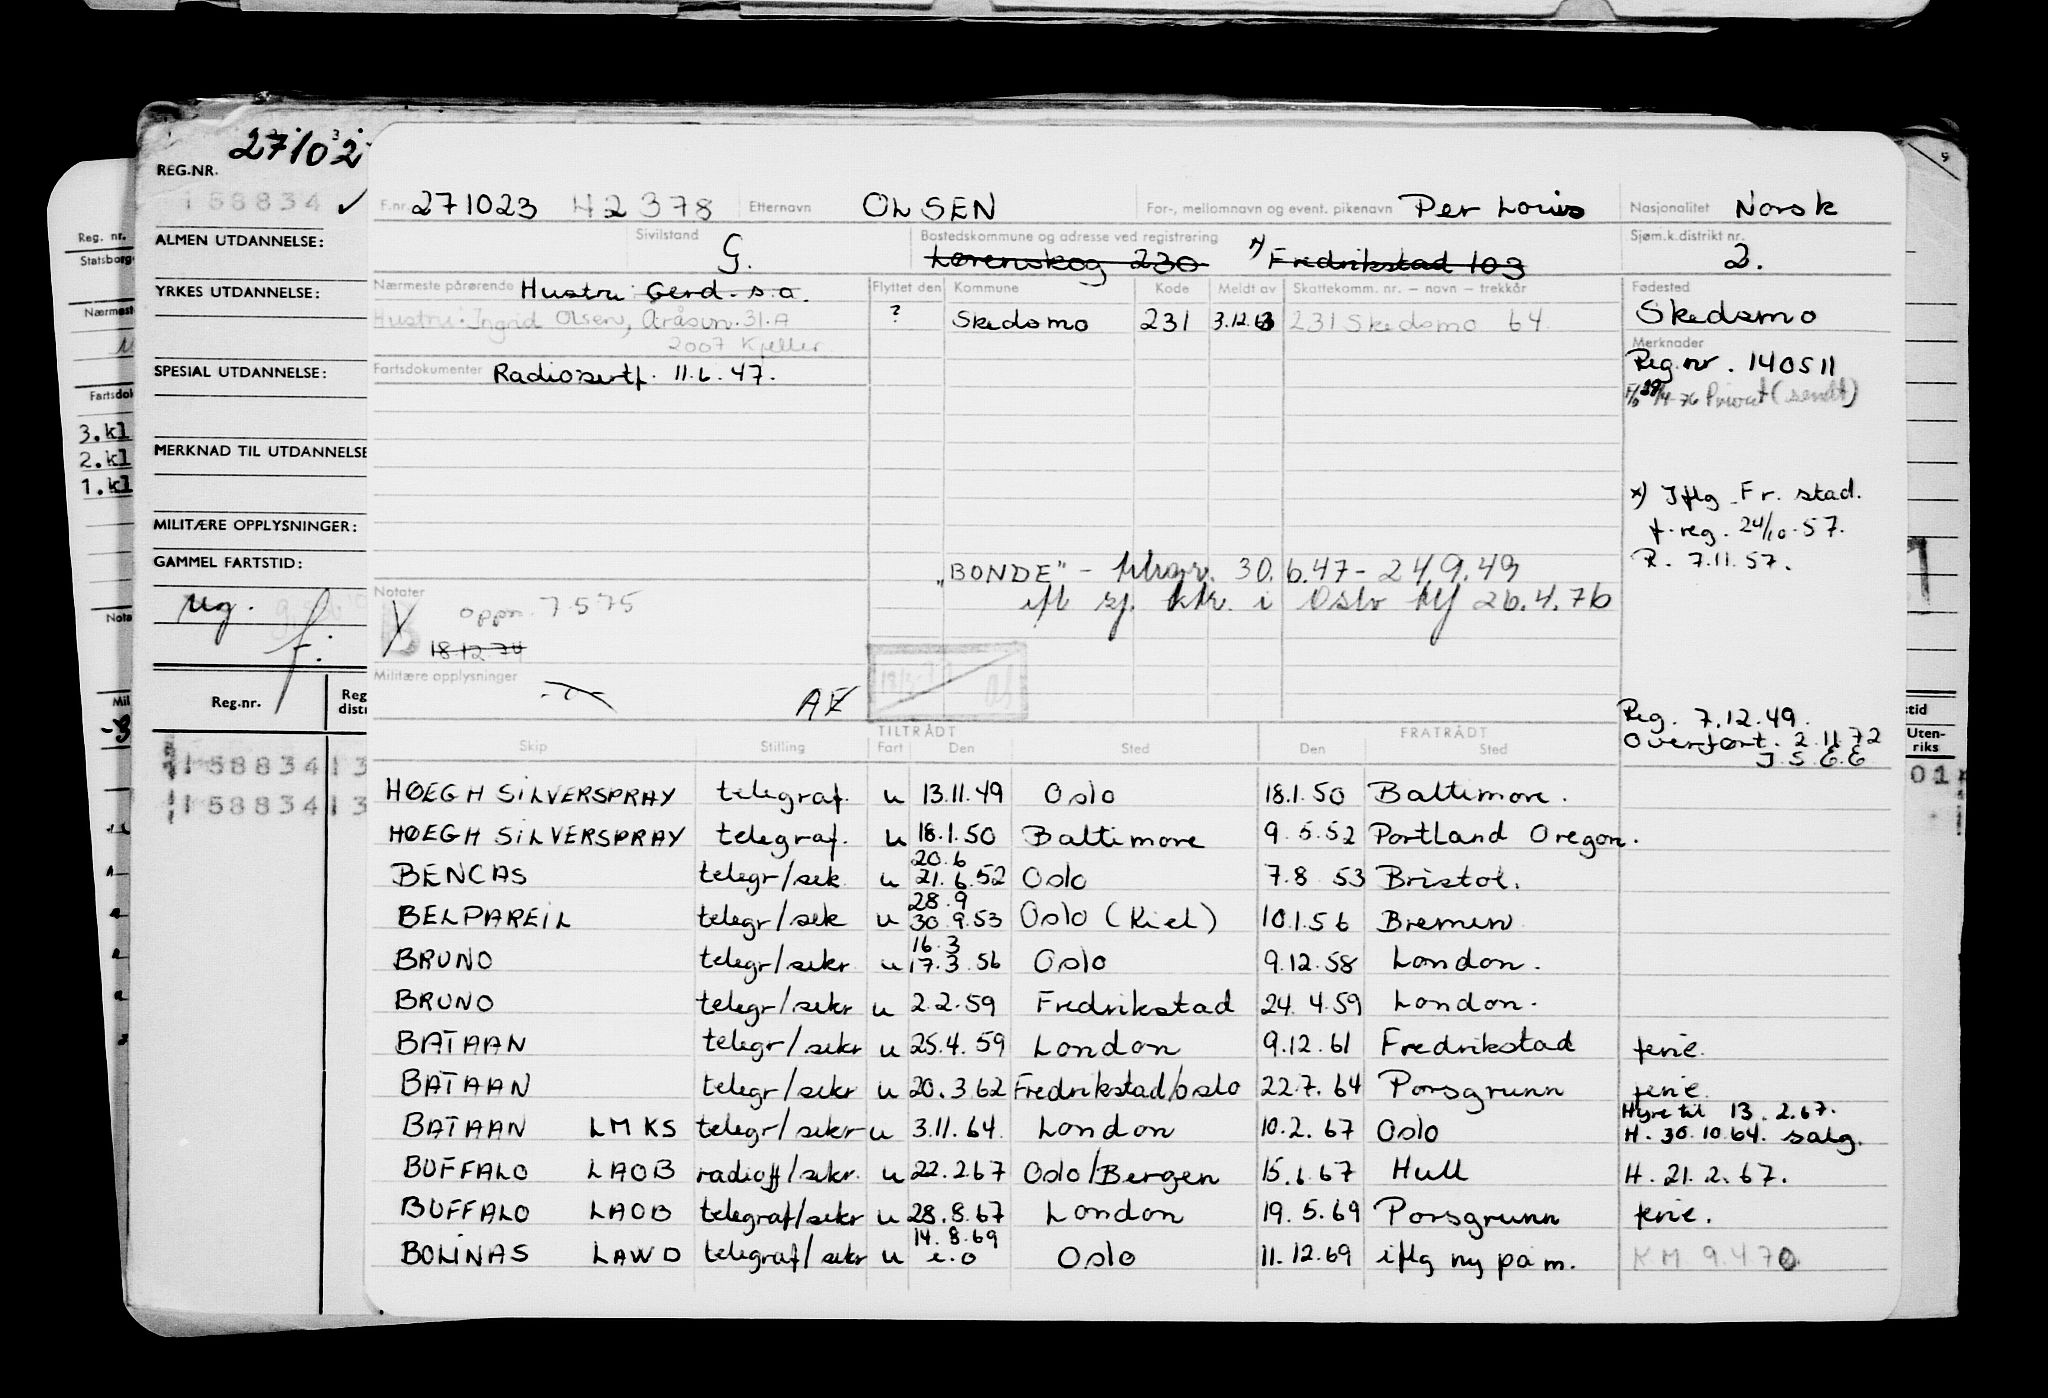 271023
REG.NR.
158834 ✓
F.nr. 271023 42378 Etternavn OLSEN For-, mellomnavn og event. pikenavn Per Louis Nasjonalitet Norsk
Reg. nr.
Statsborg
ALMEN UTDANNELSE:
Sivilstand G.
Bostedskommune og adresse ved registrering Lørenskog 230 Fredrikstad 103
Sjøm.k.distrikt nr. 2.
YRKES UTDANNELSE:
Nærmeste pårørende Hustru Gerd. s.a.
Flyttet den Kommune Kode Meldt av Skattekomm. nr. – navn – trekkår
Fødested Skedsmo
Hustru: Ingrid Olsen, Aråsvn. 31.A
2007 Kjeller
? Skedsmo 231 3.12.63 231 Skedsmo 64
Merknader
Reg.nr. 140511
76 Privat (sendt)
SPESIAL UTDANNELSE:
Fartsdokumenter Radiosertf. 11.6.47.
3.kl
2.kl
1.kl
MERKNAD TIL UTDANNELSE
x) Iflg Fr.stad.
f.reg. 24/10-57.
R. 7.11.57.
MILITÆRE OPPLYSNINGER:
GAMMEL FARTSTID:
"BONDE" - 30.6.47- 24.9.49
ifl sj. ktr. i Oslo 26.4.76
Notater
oppn. 7.5.75
18.12.74
Militære opplysninger
Reg. 7.12.49.
Overført. 2.11.72
I.S.E.E
Reg.nr.
Reg
distr
158834 13
158834 13
Uten-
riks
01
TILTRÅDT FRATRÅDT
Skip Stilling Fart Den Sted Den Sted
HØEGH SILVERSPRAY telegraf. u 13.11.49 Oslo 18.1.50 Baltimore.
HØEGH SILVERSPRAY telegraf. u 18.1.50 Baltimore 9.5.52 Portland Oregon.
BENCAS telegr/sek u 20.6 21.6.52 Oslo 7.8 53 Bristol.
BELPAREIL telegr/sek u 28.9 30.9.53 Oslo (Kiel) 10.1.56 Bremen
BRUNO telegr/sekr u 16.3 17.3.56 Oslo 9.12.58 London.
BRUNO telegr/sekr u 2.2.59 Fredrikstad 24.4.59 London.
BATAAN telegr/sekr u 25.4.59 London 9.12.61 Fredrikstad ferie.
BATAAN telegr/sekr u 20.3.62 Fredrikstad/Oslo 22.7.64 Porsgrunn ferie.
BATAAN LMKS telegr/sekr u 3.11.64. London 10.2.67 Oslo Hyre til 13.2.67. H. 30.10.64. salg.
BUFFALO LAOB radioff/sekr. u 22.2.67 Oslo/Bergen 15.6.67 Hull H. 21.2.67.
BUFFALO LAOB telegraf/sekr u 28.8.67 London 19.5.69 Porsgrunn ferie.
BOLINAS LAWD telegraf/sekr u 14.8.69 e.o Oslo 11.12.69 iflg ny påm. KM 9.4.70